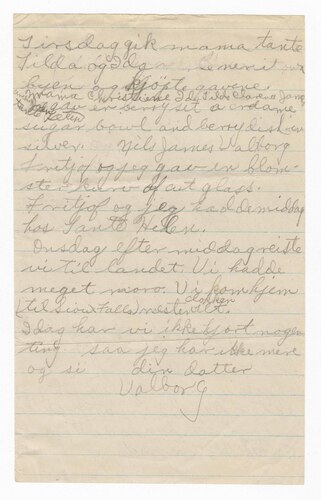 Tirsdag gik mama tante
Tilda og Ida
byen og kjöpte gavene.
mama Christiene Ida Tilda Clara Jane
tante Helen
gav en berry set a creame
sugar bowl and berry dish in
silver. Nils James Valborg
Fritjof og jeg gav en blom-
ster kurv of cut glass.
Fritjof og jeg hadde middag
hos Tante Helen.
Onsdag efter middag reiste
vi til landet. Vi hadde
meget moro. Vi kom hjem
klokken
(til Sioux Falls) næsten elt.
Idag har vi ikke gjort nogen
ting saa jeg har ikke mere
og si din datter
Valborg